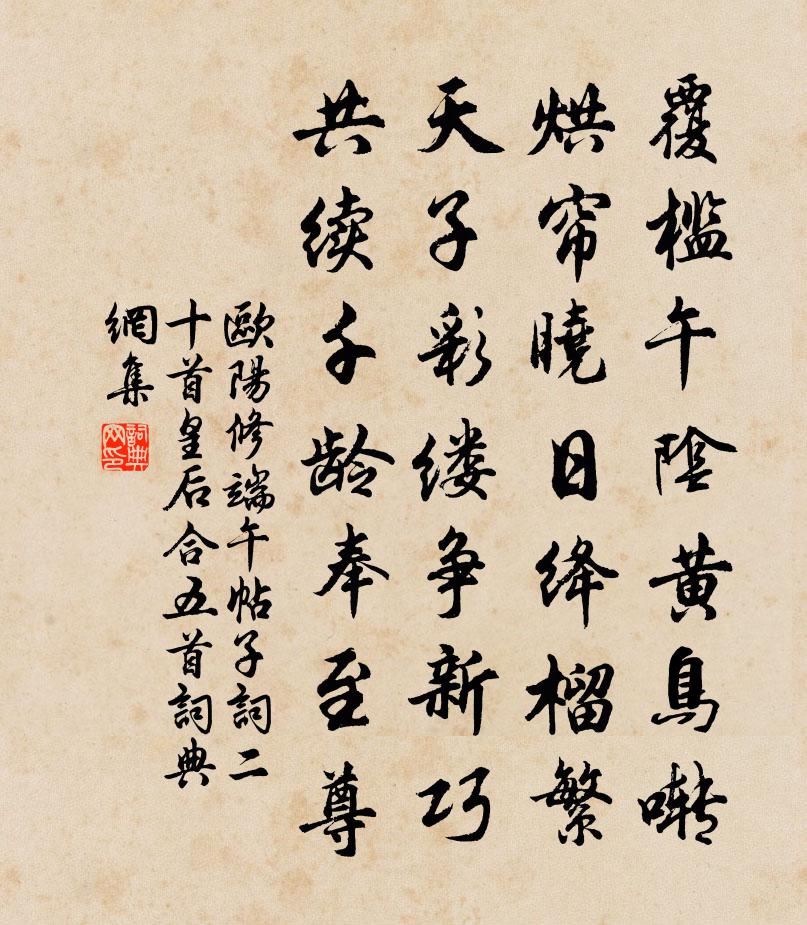 覆槛午陰黄鳥啭
烘帘曉日绛榴繁
天子彩缕争新巧
共续千龄奉至尊
歐陽修端午帖子詞二
十首皇后合五首詞典
網集
詞典
网印